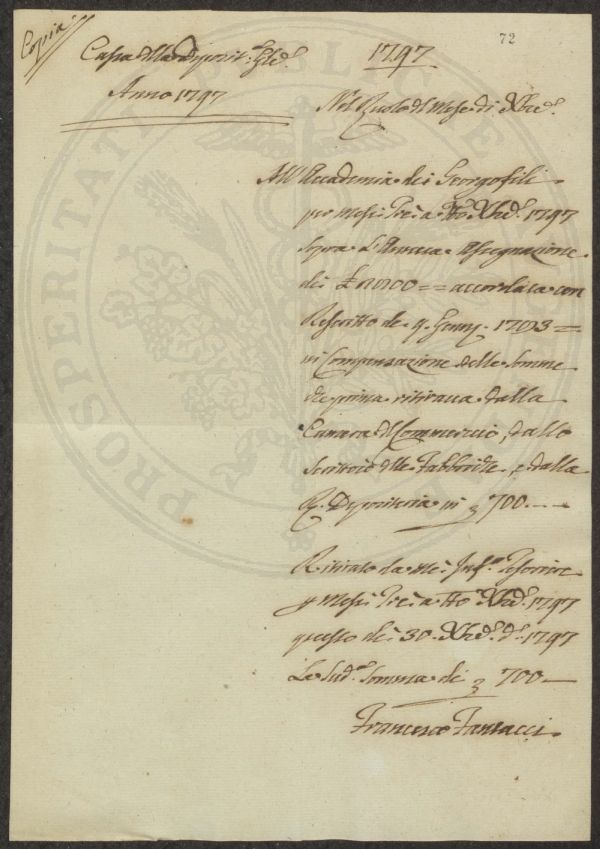 Copia
72
Cassa della Deposit.
Anno 1797
1797
Nel Ruolo del Mese di Xbre.
All'Accademia dei Georgofili
per Mesi Tre a tto. Xbre. 1797
sopra l'Annua Assegnazione
di
accordata con
Rescritto de 9. Genn. 1793
in Compensazione delle somme
che prima ritirava dalla
Camera di Commercio, dallo
Scrittoio delle Fabbriche, e dalla
R. Depositeria in 700.
Ritirato da me Infr.
p Mesi Tre a tto. Xbre. 1797
questo dì 30. Xbre. do. 1797
La Sud. Somma di 700
Francesco
PROSPERITATI PUBLICAE